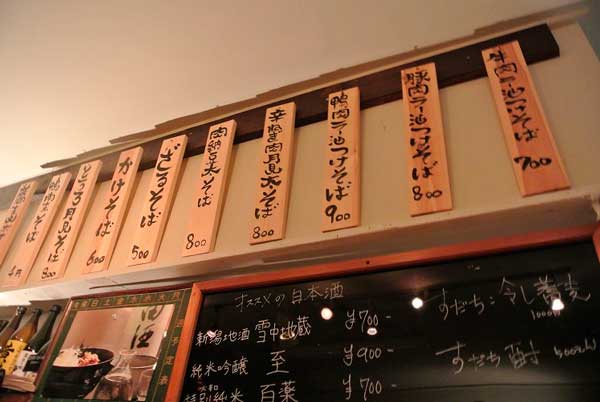 牛肉ラー油つけそば
700
豚肉ラー油つけそば
800
鴨肉ラー油つけそば
900
辛監肉月見太そば
800
肉納豆太そば
800
ざるそば
500
かけそば
600
とろろ月見そば
800
そば
オススメの日本酒
新潟地酒 雪中地蔵 ¥700-
純米吟醸 至 ¥900-
大和
特別純米 百薬 ¥700
すだち:冷し蕎麦
1000
すだち酎 500えん